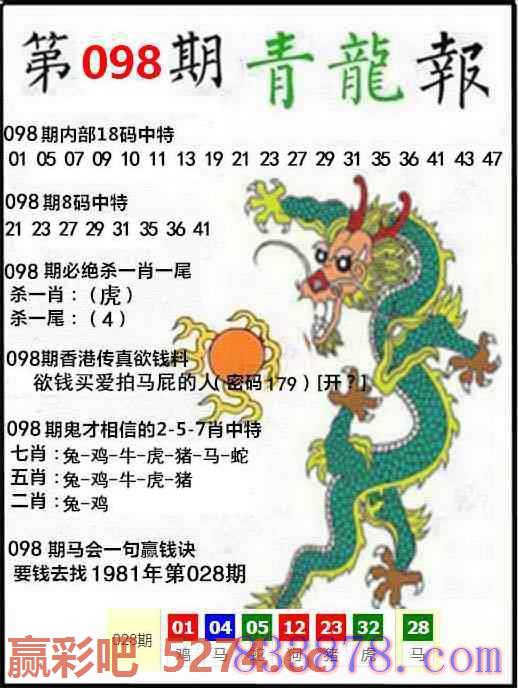 第098期青龍報
098期内部18码中特
01 05 07 09 10 11 13 19 21 23 27 29 31 35 36 41 43 47
098期8码中特
21 23 27 29 31 35 36 41
098期必绝杀一肖一尾
杀一肖：（虎）
杀一尾：（4）
098期香港传真欲钱料
欲钱买爱拍马屁的人(密码179)[开？]
098期鬼才相信的2-5-7肖中特
七肖：兔-鸡-牛-虎-猪-马-蛇
五肖：兔-鸡-牛-虎-猪
二肖：兔-鸡
098期马会一句赢钱诀
要钱去找1981年第028期
028期 01 04 05 12 23 32 28
鸡 马 蛇 狗 猪 虎 马
赢彩吧 5274.cc